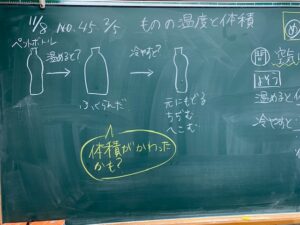 11/8 NO.45 2/5 ものの温度と体積
ペットボトル
温めると? 冷やすと?
ふくらんだ
元にもどる
ちぢむ
へこむ
体積がかわった
かも?
問 空気
よそう
温めると
冷やすと